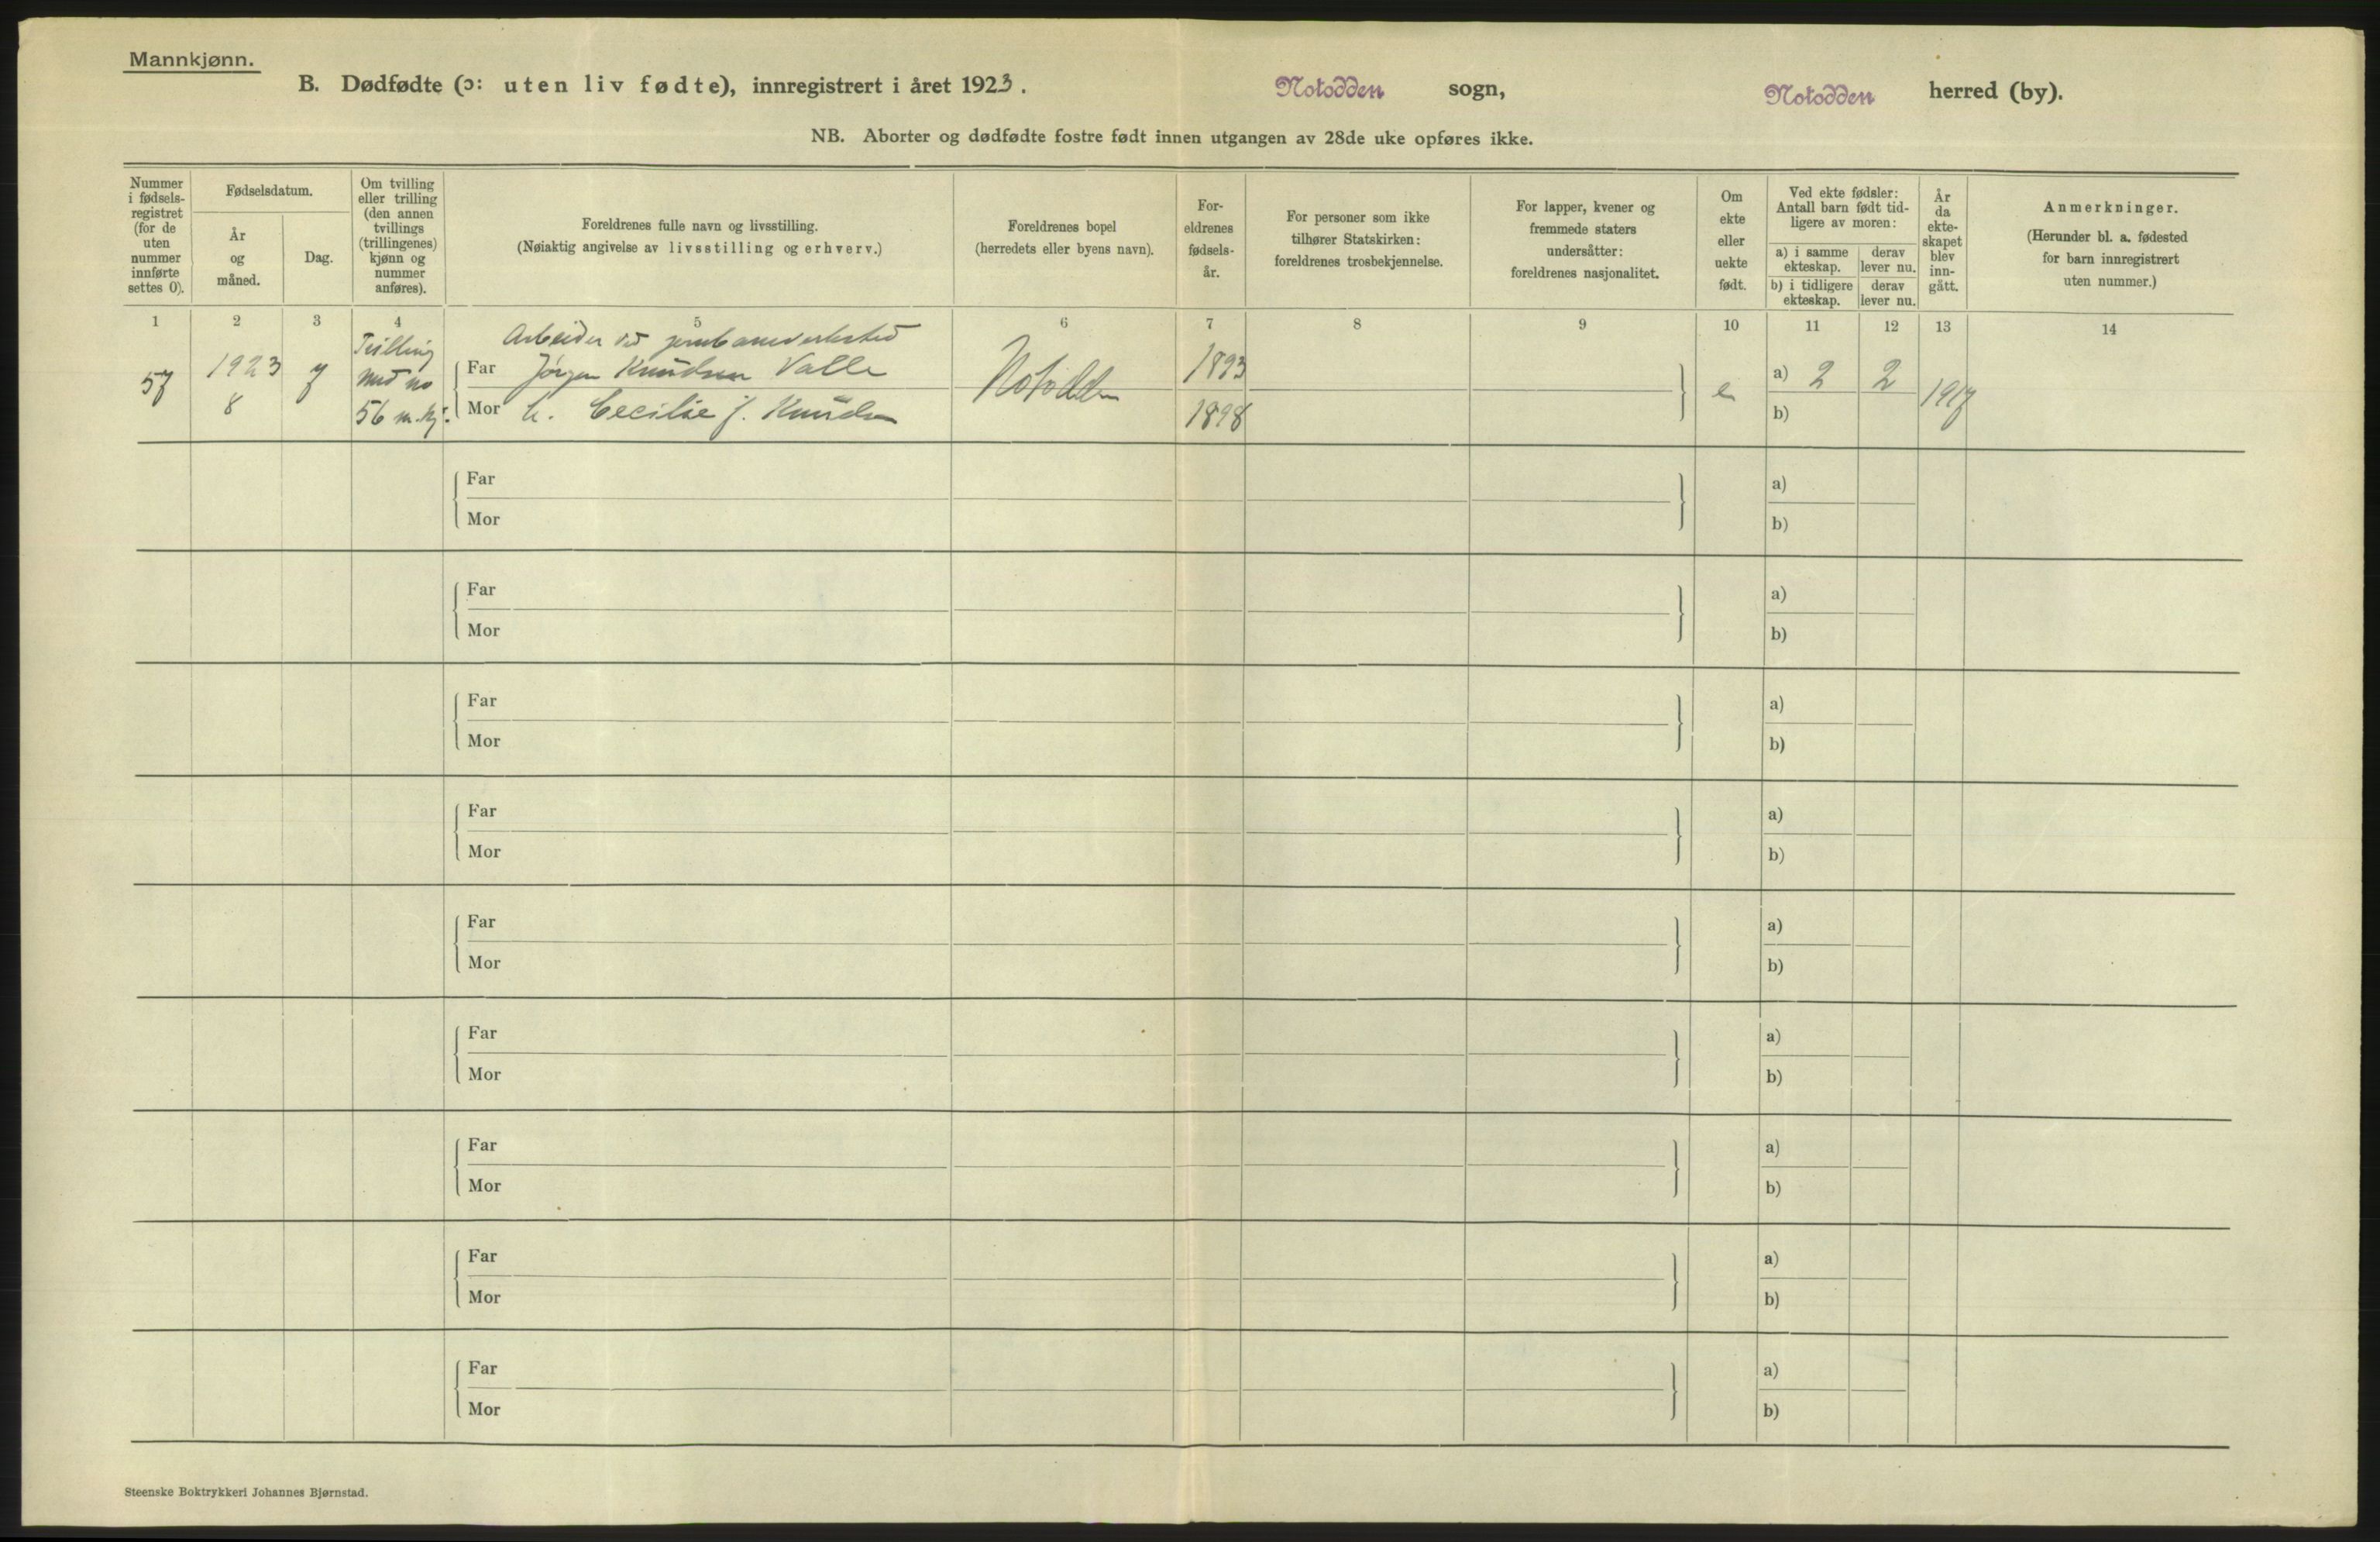 Mannkjønn.
B. Dødfødte (ɔ: uten liv fødte), innregistrert i året 1923.
Notodden sogn,
Notodden herred (by).
NB. Aborter og dødfødte fostre født innen utgangen av 28de uke opføres ikke.
Nummer
i fødsels-
registret
(for de
uten
nummer
innførte
settes 0).
Fødselsdatum.
År
og
måned.
Dag.
Om tvilling
eller trilling
(den annen
tvillings
(trillingenes)
kjønn og
nummer
anføres).
Foreldrenes fulle navn og livsstilling.
(Nøiaktig angivelse av livsstilling og erhverv.)
Foreldrenes bopel
(herredets eller byens navn).
For-
eldrenes
fødsels-
år.
For personer som ikke
tilhører Statskirken:
foreldrenes trosbekjennelse.
For lapper, kvener og
fremmede staters
undersåtter:
foreldrenes nasjonalitet.
Om
ekte
eller
uekte
født.
Ved ekte fødsler:
Antall barn født tid-
ligere av moren:
a) i samme
ekteskap.
derav
lever nu.
b) i tidligere
ekteskap.
derav
lever nu.
År
da
ekte-
skapet
blev
inn-
gått.
Anmerkninger.
(Herunder bl. a. fødested
for barn innregistrert
uten nummer.)
1 2 3 4 5 6 7 8 9 10 11 12 13 14
57
1923
8
7
med no
56 m.kj.
Arbeider ved jernbaneverksted
Far Jørgen Knudsen Valle
Mor h. Cecilie J. Knudsen
Notodden
1893
1898
e
a) 2 2
b)
1917
Far
Mor
a)
b)
Far
Mor
a)
b)
Far
Mor
a)
b)
Far
Mor
a)
b)
Far
Mor
a)
b)
Far
Mor
a)
b)
Far
Mor
a)
b)
Far
Mor
a)
b)
Far
Mor
a)
b)
Steenske Boktrykkeri Johannes Bjørnstad.